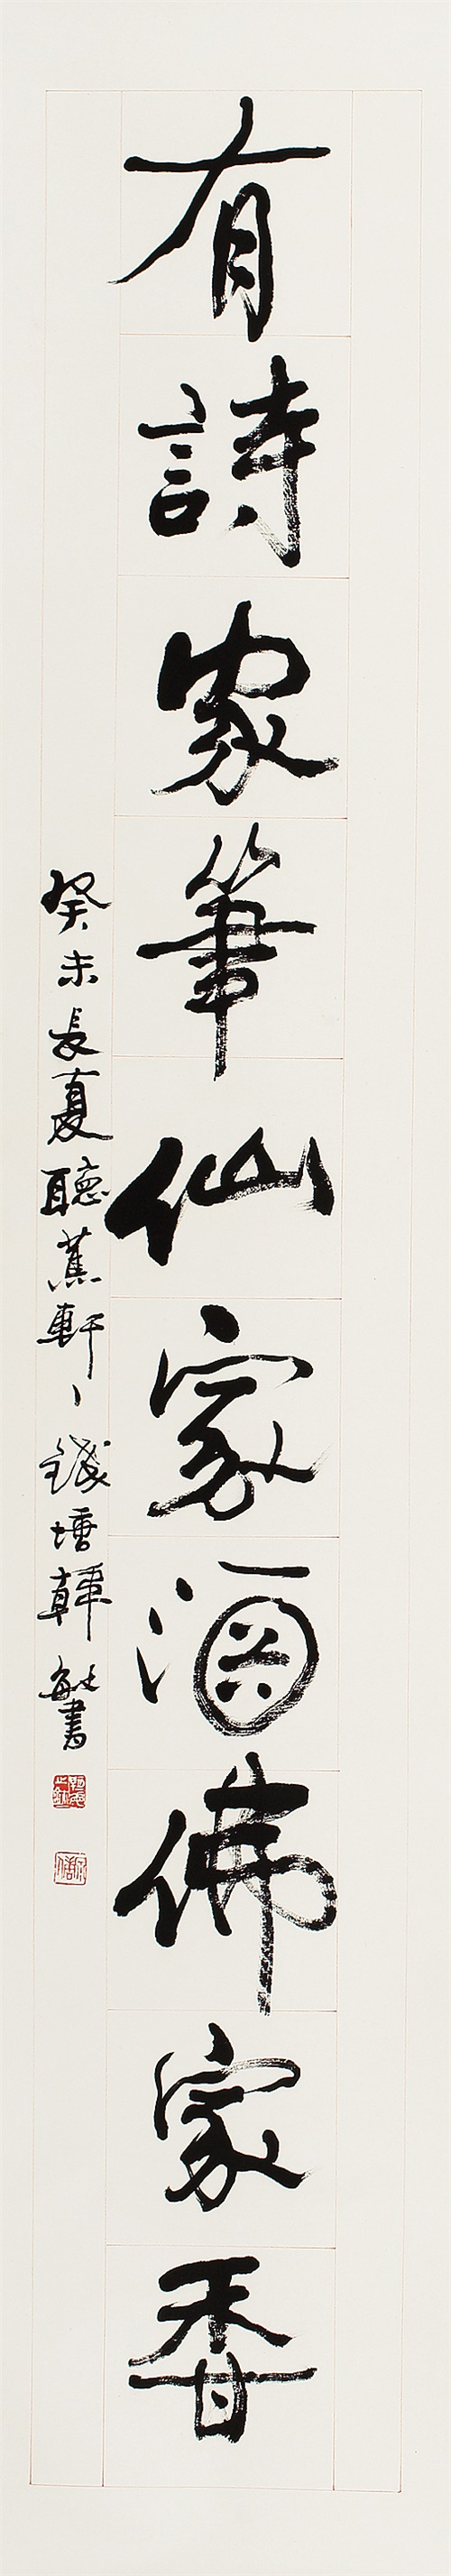 有詩家筆仙家酒佛家香
癸未長夏聽蕉軒、錢塘韓敏書